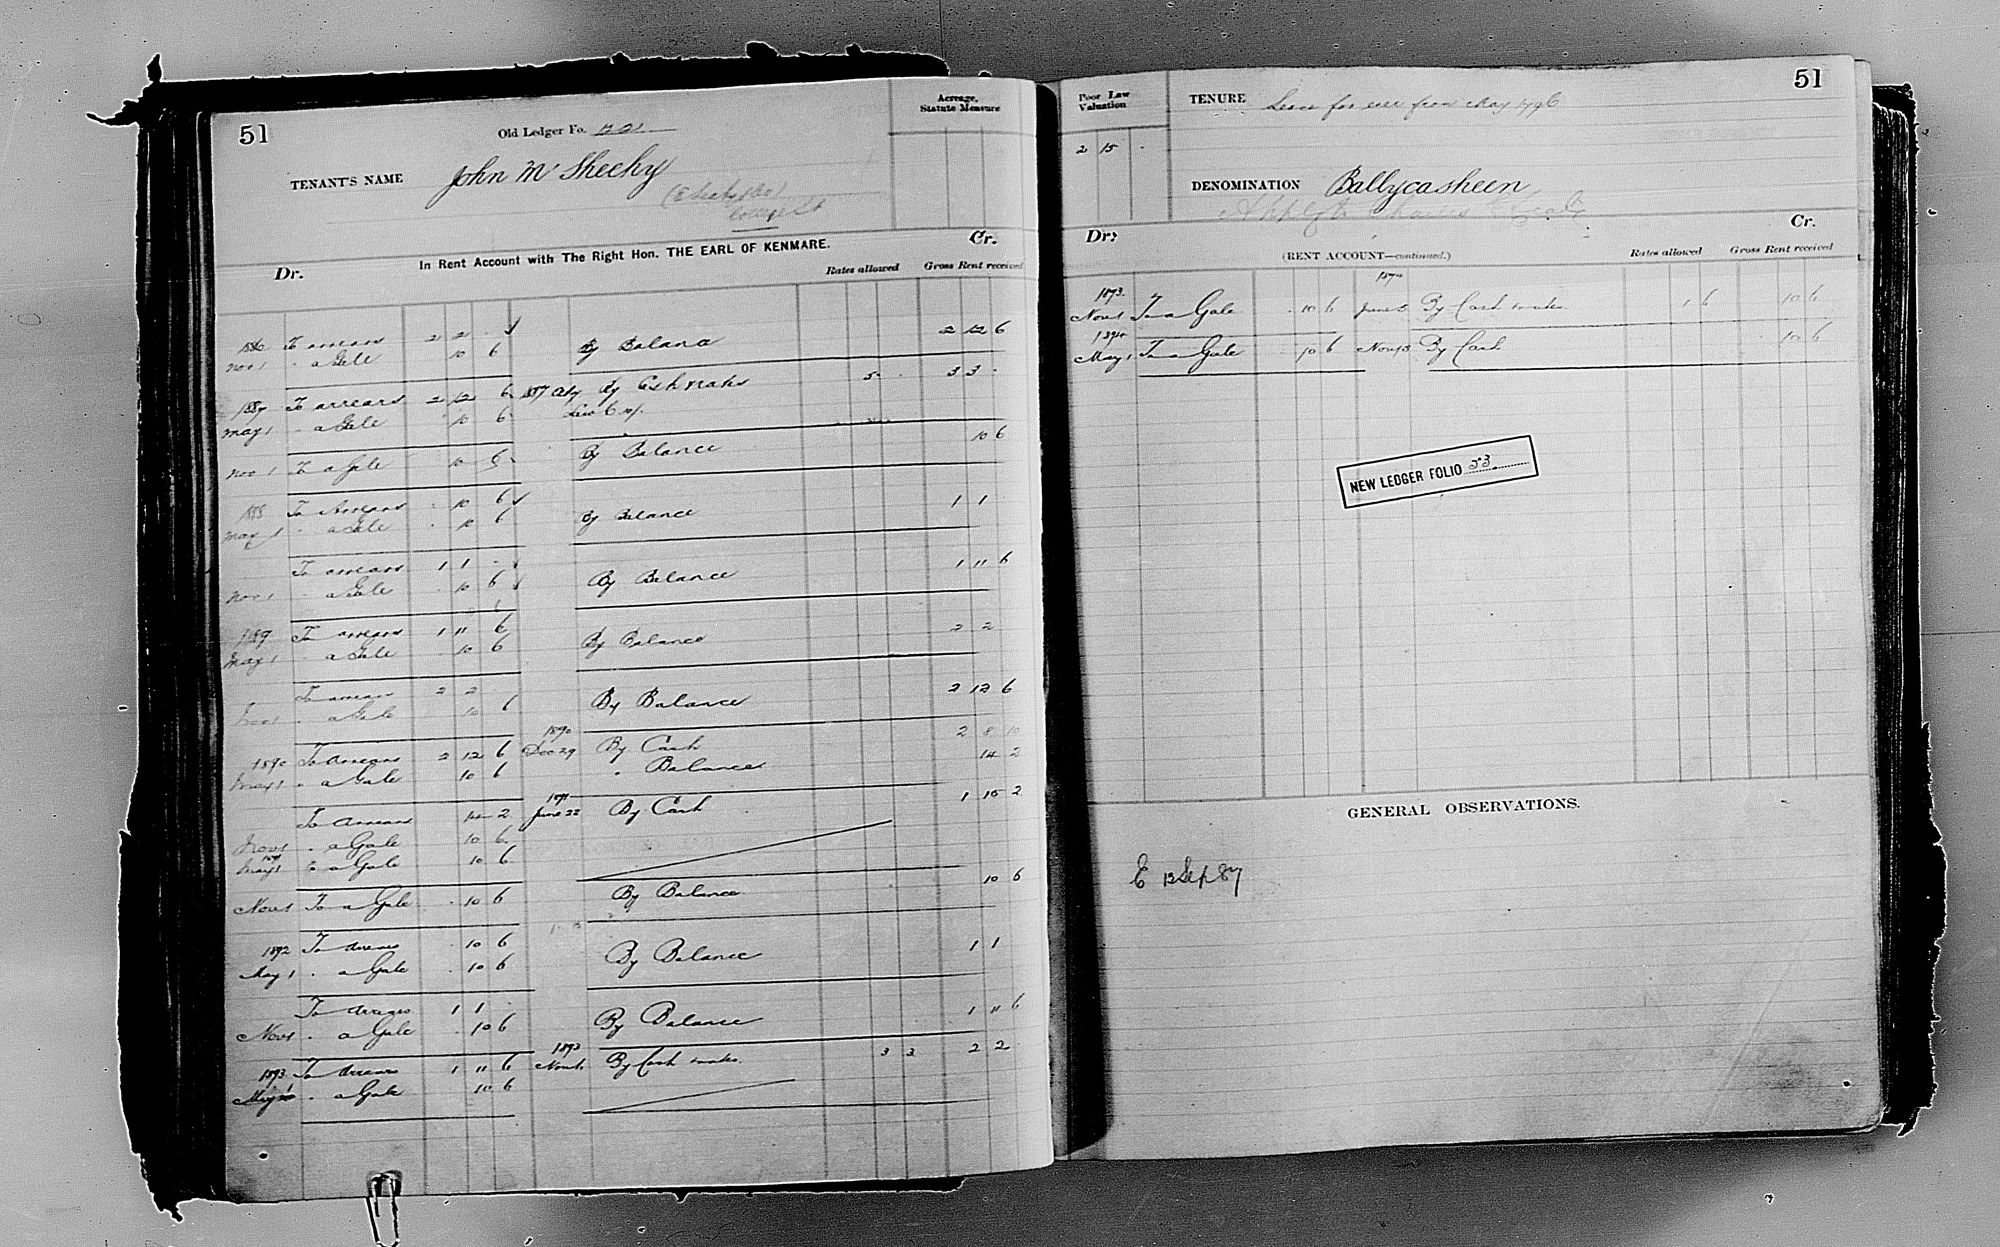 51
Old Ledger Fo.
Acreage,
Statute Measure
TENANT'S NAME John McSheehy
In Rent Account with The Right Hon. THE EARL OF KENMARE.
Dr. Cr.
Rates allowed Gross Rent received
To arrears 2 2 -
Nov 1 " a Gale 10 6 By Balance 2 12 6
1887 To arrears 2 12 6 By Cash & rates 5 - 3 3 -
May 1 " a Gale 10 6
Nov 1 To a Gale 10 6 By Balance 10 6
1888 To Arrears 10 6
May 1 " a Gale 10 6 By Balance 1 1
To arrears 1 1 -
Nov 1 " a Gale 10 6 By Balance 1 11 6
1889 To arrears 1 11 6
May 1 " a Gale 10 6 By Balance 2 2
To arrears 2 2
Nov 1 " a Gale 10 6 By Balance 2 12 6
1890
1890 To Arrears 2 12 6 Dec 29 By Cash 2 8 10
May 1 " a Gale 10 6 " Balance 14 2
1891
To Arrears 14 2 June 22 By Cash 1 15 2
Nov 1 " a Gale 10 6
1891
May 1 To a Gale 10 6
Nov 1 To a Gale 10 6 By Balance 10 6
1892 To Arrears 10 6
May 1 " a Gale 10 6 By Balance 1 1
To Arrears 1 1 -
Nov 1 " a Gale 10 6 By Balance 1 11 6
1893
1893 To Arrears 1 11 6 By Cash & rates 3 3 2 2
May 1 " a Gale 10 6
51
Poor Law
Valuation
2 15 -
TENURE Lease for ever from May 1796
DENOMINATION Ballycasheen
Dr: Cr.
(RENT ACCOUNT—continued.)
Rates allowed Gross Rent received
1893
Nov 1 To a Gale 10 6 June By Cash & rates 1 6 10 6
1894
May 1 To a Gale 10 6 By Cash 10 6
NEW LEDGER FOLIO 53
GENERAL OBSERVATIONS.
E 12 Sep 87